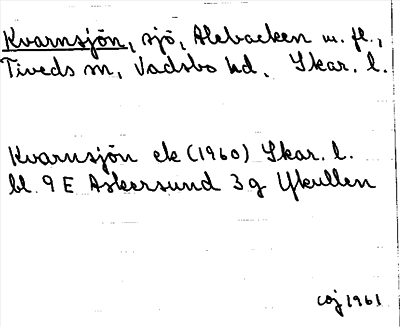 Kvarnsjön, sjö, Alebacken m. fl.,
Tiveds sn, Vadsbo hd. Skar. l.
Kvarnsjön ek (1960) Skar. l.
bl. 9 E Askersund 3 g Ykullen
coj 1961